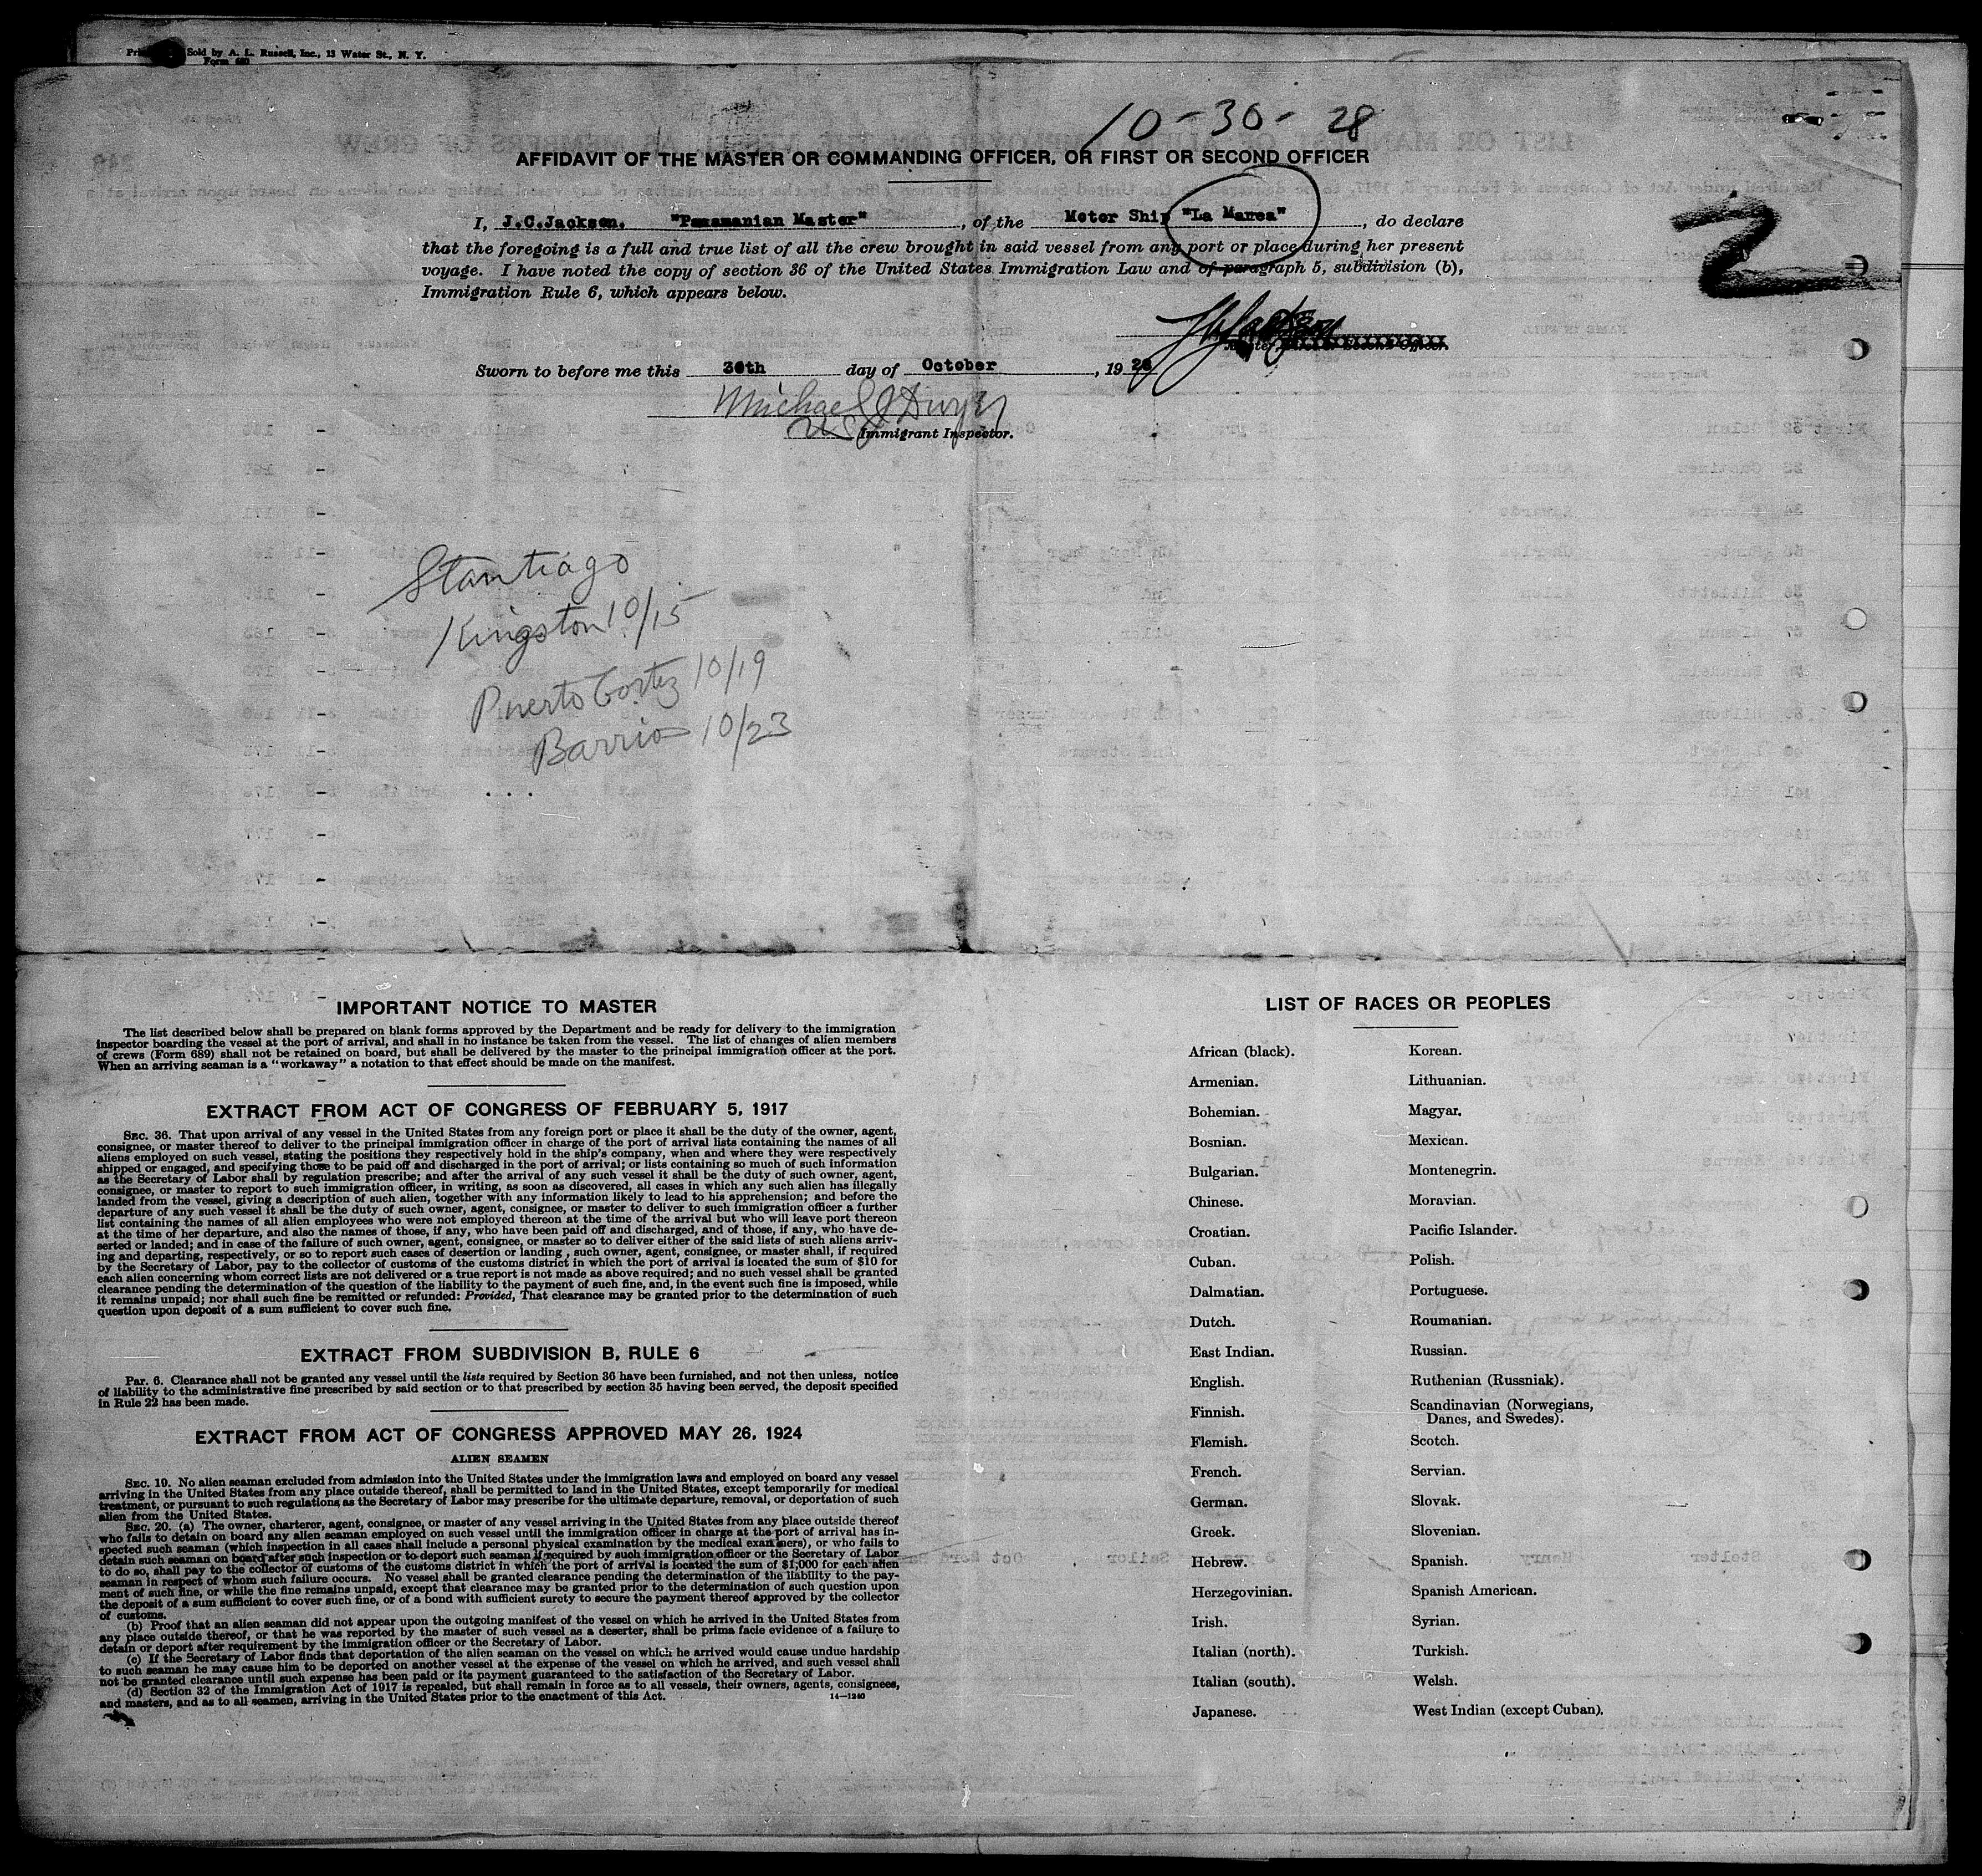 Sold by A. L. Russell, Inc., 13 Water St., N. Y.
Form 680
10-30-28
AFFIDAVIT OF THE MASTER OR COMMANDING OFFICER, OR FIRST OR SECOND OFFICER
I, J.C.Jackson. "Panamanian Master", of the Motor Ship "La Marea", do declare
that the foregoing is a full and true list of all the crew brought in said vessel from any port or place during her present
voyage. I have noted the copy of section 36 of the United States Immigration Law and of paragraph 5, subdivision (b),
Immigration Rule 6, which appears below.
2
Master
Sworn to before me this 30th day of October, 1928
Michael J Dwyer
Immigrant Inspector.
Stantiago
Kingston 10/15
Puerto Cortez 10/19
Barrios 10/23
IMPORTANT NOTICE TO MASTER
The list described below shall be prepared on blank forms approved by the Department and be ready for delivery to the immigration
inspector boarding the vessel at the port of arrival, and shall in no instance be taken from the vessel. The list of changes of alien members
of crews (Form 689) shall not be retained on board, but shall be delivered by the master to the principal immigration officer at the port.
When an arriving seaman is a "workaway" a notation to that effect should be made on the manifest.
EXTRACT FROM ACT OF CONGRESS OF FEBRUARY 5, 1917
SEC. 36. That upon arrival of any vessel in the United States from any foreign port or place it shall be the duty of the owner, agent,
consignee, or master thereof to deliver to the principal immigration officer in charge of the port of arrival lists containing the names of all
aliens employed on such vessel, stating the positions they respectively hold in the ship's company, when and where they were respectively
shipped or engaged, and specifying those to be paid off and discharged in the port of arrival; or lists containing so much of such information
as the Secretary of Labor shall by regulation prescribe; and after the arrival of any such vessel it shall be the duty of such owner, agent,
consignee, or master to report to such immigration officer, in writing, as soon as discovered, all cases in which any such alien has illegally
landed from the vessel, giving a description of such alien, together with any information likely to lead to his apprehension; and before the
departure of any such vessel it shall be the duty of such owner, agent, consignee, or master to deliver to such immigration officer a further
list containing the names of all alien employees who were not employed thereon at the time of the arrival but who will leave port thereon
at the time of her departure, and also the names of those, if any, who have been paid off and discharged, and of those, if any, who have de-
serted or landed; and in case of the failure of such owner, agent, consignee, or master so to deliver either of the said lists of such aliens arriv-
ing and departing, respectively, or so to report such cases of desertion or landing, such owner, agent, consignee, or master shall, if required
by the Secretary of Labor, pay to the collector of customs of the customs district in which the port of arrival is located the sum of $10 for
each alien concerning whom correct lists are not delivered or a true report is not made as above required; and no such vessel shall be granted
clearance pending the determination of the question of the liability to the payment of such fine, and, in the event such fine is imposed, while
it remains unpaid; nor shall such fine be remitted or refunded: Provided, That clearance may be granted prior to the determination of such
question upon deposit of a sum sufficient to cover such fine.
EXTRACT FROM SUBDIVISION B, RULE 6
Par. 6. Clearance shall not be granted any vessel until the lists required by Section 36 have been furnished, and not then unless, notice
of liability to the administrative fine prescribed by said section or to that prescribed by section 35 having been served, the deposit specified
in Rule 22 has been made.
EXTRACT FROM ACT OF CONGRESS APPROVED MAY 26, 1924
ALIEN SEAMEN
SEC. 19. No alien seaman excluded from admission into the United States under the immigration laws and employed on board any vessel
arriving in the United States from any place outside thereof, shall be permitted to land in the United States, except temporarily for medical
treatment, or pursuant to such regulations as the Secretary of Labor may prescribe for the ultimate departure, removal, or deportation of such
alien from the United States.
SEC. 20. (a) The owner, charterer, agent, consignee, or master of any vessel arriving in the United States from any place outside thereof
who fails to detain on board any alien seaman employed on such vessel until the immigration officer in charge at the port of arrival has in-
spected such seaman (which inspection in all cases shall include a personal physical examination by the medical examiners), or who fails to
detain such seaman on board after such inspection or to deport such seaman if required by such immigration officer or the Secretary of Labor
to do so, shall pay to the collector of customs of the customs district in which the port of arrival is located the sum of $1,000 for each alien
seaman in respect of whom such failure occurs. No vessel shall be granted clearance pending the determination of the liability to the pay-
ment of such fine, or while the fine remains unpaid, except that clearance may be granted prior to the determination of such question upon
the deposit of a sum sufficient to cover such fine, or of a bond with sufficient surety to secure the payment thereof approved by the collector
of customs.
(b) Proof that an alien seaman did not appear upon the outgoing manifest of the vessel on which he arrived in the United States from
any place outside thereof, or that he was reported by the master of such vessel as a deserter, shall be prima facie evidence of a failure to
detain or deport after requirement by the immigration officer or the Secretary of Labor.
(c) If the Secretary of Labor finds that deportation of the alien seaman on the vessel on which he arrived would cause undue hardship
to such seaman he may cause him to be deported on another vessel at the expense of the vessel on which he arrived, and such vessel shall
not be granted clearance until such expense has been paid or its payment guaranteed to the satisfaction of the Secretary of Labor.
(d) Section 32 of the Immigration Act of 1917 is repealed, but shall remain in force as to all vessels, their owners, agents, consignees,
and masters, and as to all seamen, arriving in the United States prior to the enactment of this Act. 14—1240
LIST OF RACES OR PEOPLES
African (black). Korean.
Armenian. Lithuanian.
Bohemian. Magyar.
Bosnian. Mexican.
Bulgarian. Montenegrin.
Chinese. Moravian.
Croatian. Pacific Islander.
Cuban. Polish.
Dalmatian. Portuguese.
Dutch. Roumanian.
East Indian. Russian.
English. Ruthenian (Russniak).
Finnish. Scandinavian (Norwegians,
Danes, and Swedes).
Flemish. Scotch.
French. Servian.
German. Slovak.
Greek. Slovenian.
Hebrew. Spanish.
Herzegovinian. Spanish American.
Irish. Syrian.
Italian (north). Turkish.
Italian (south). Welsh.
Japanese. West Indian (except Cuban).